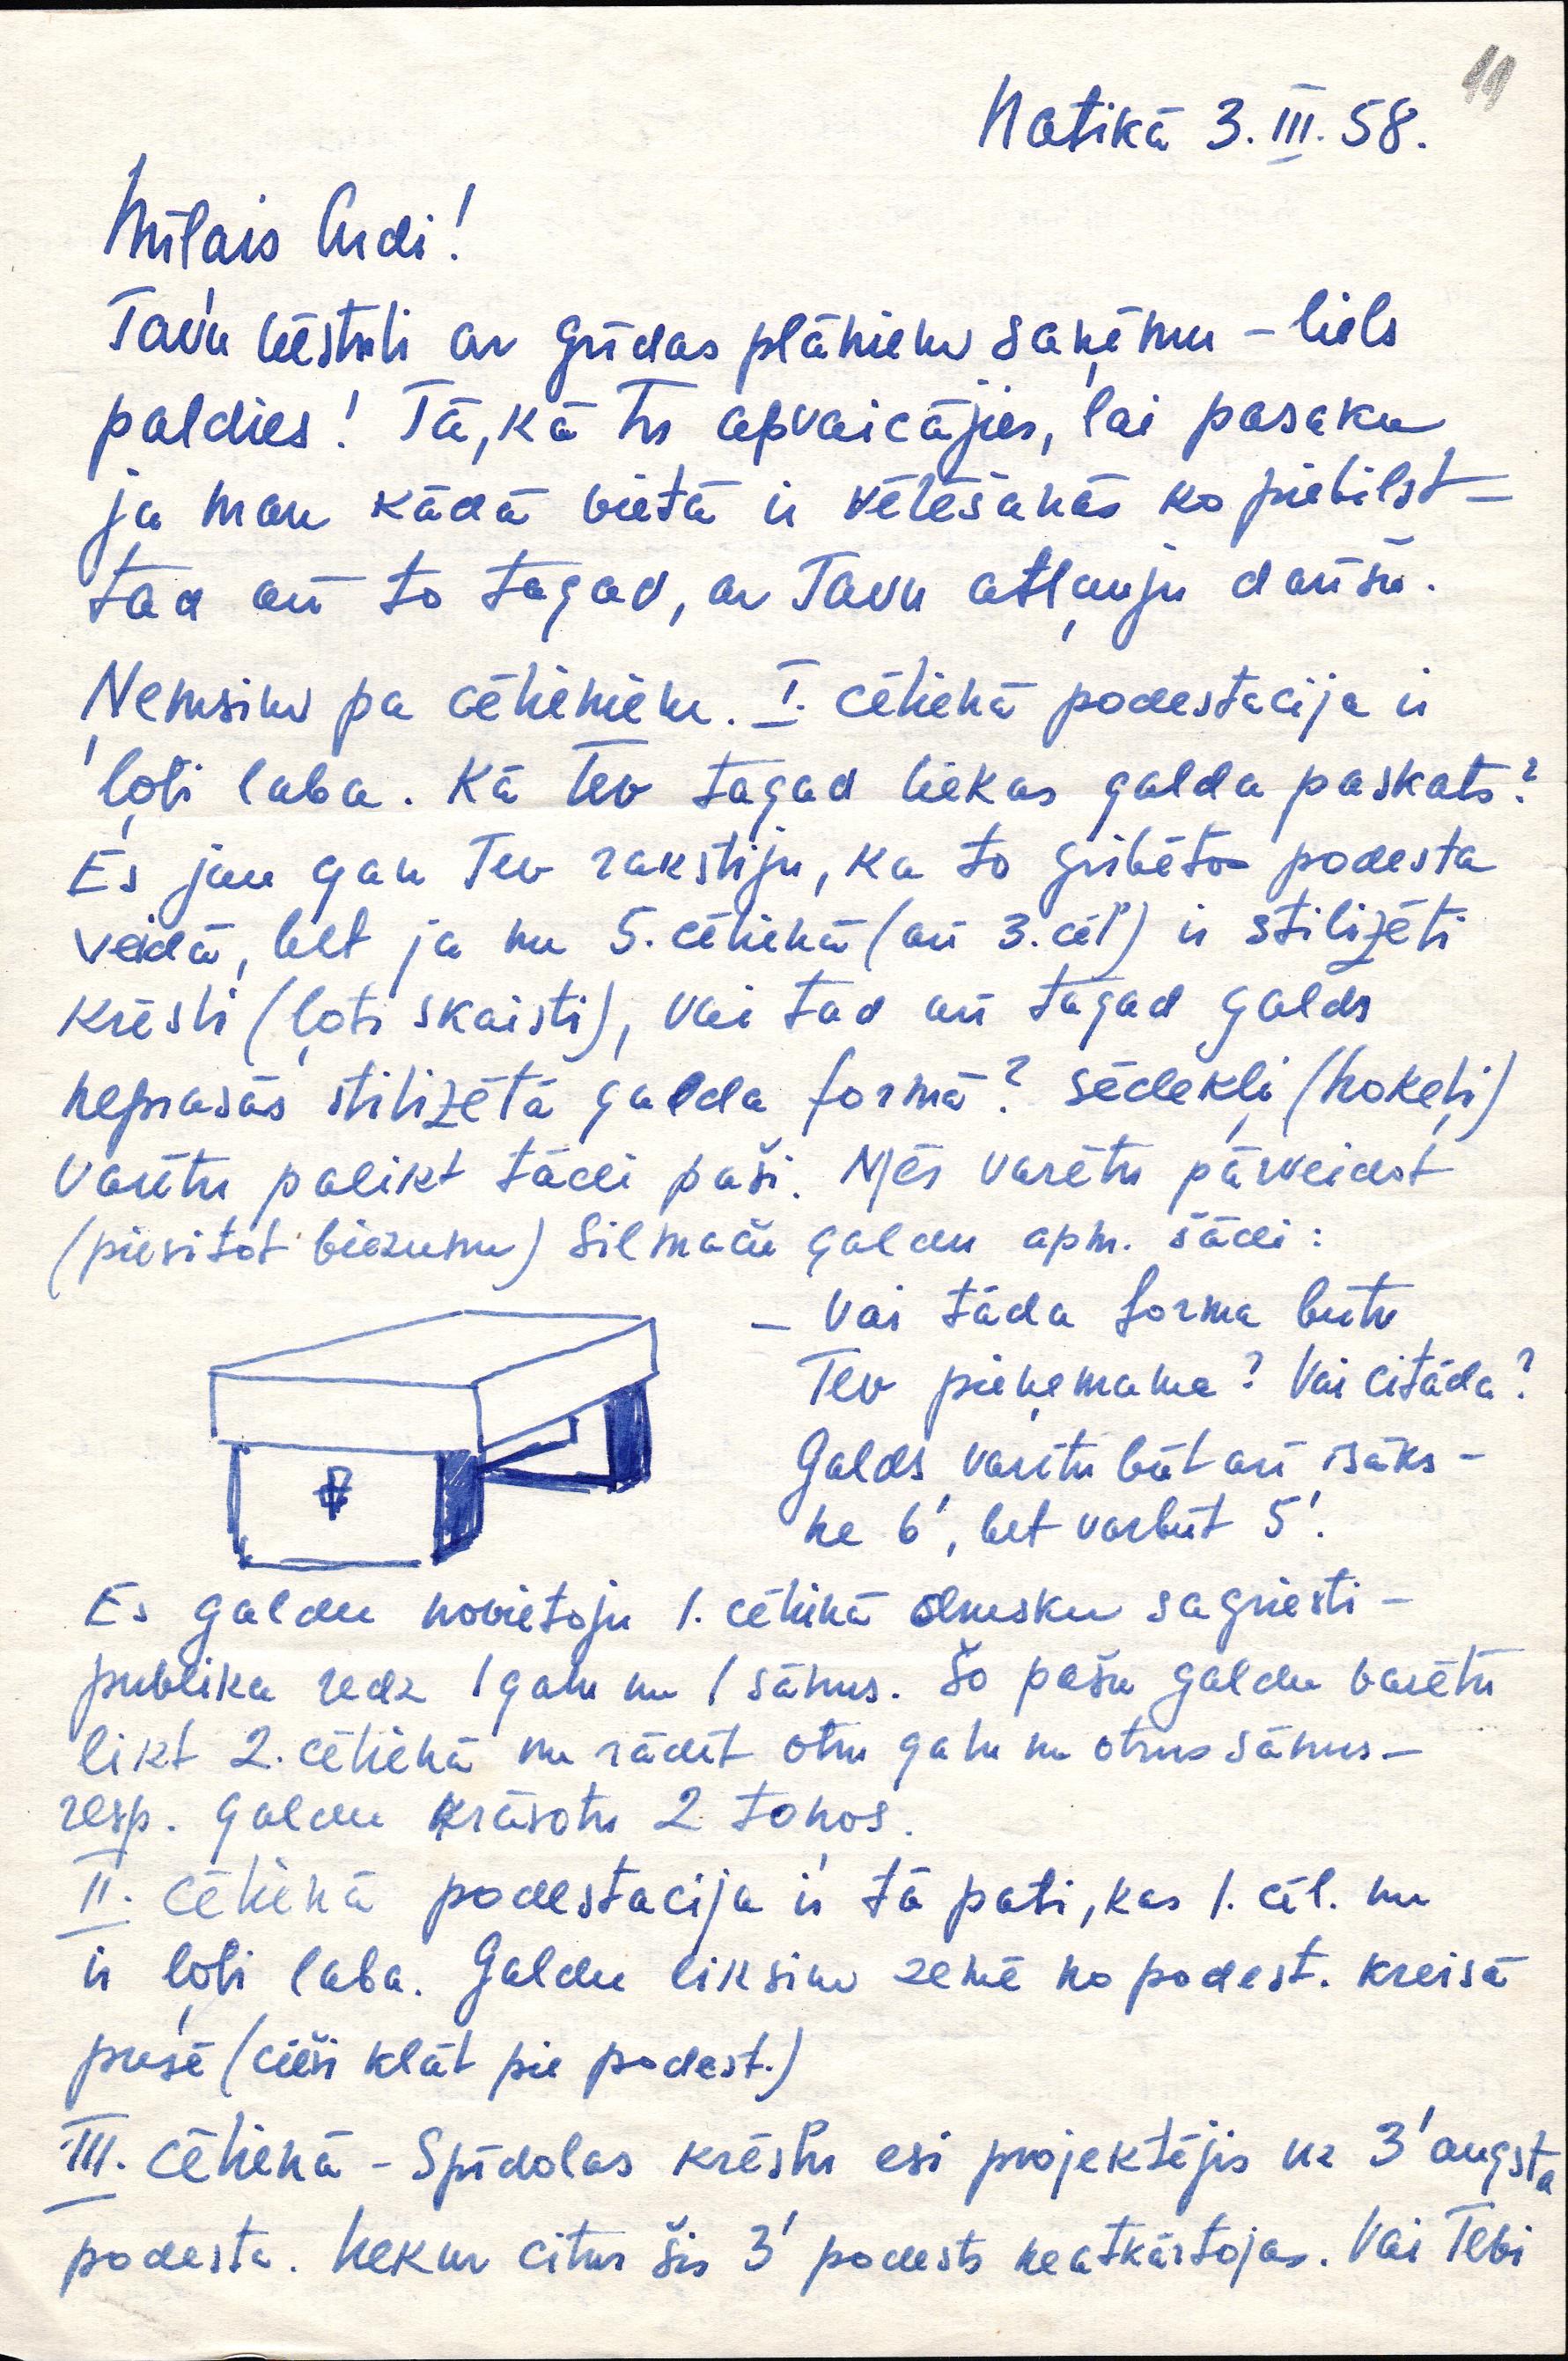 11
Natikā 3. III. 58.
Mīļais Andi!
Tavu vēstuli ar grīdas plāniem saņēmu – liels
paldies! Tā, kā Tu apvaicājies, lai pasaku
ja man kādā vietā ir vēlēšanās ko piebilst –
tad arī to tagad, ar Tavu atļauju darīšu.
Ņemsim pa cēlieniem. I. cēlienā podestacija ir
ļoti laba. Kā Tev tagad liekas galda paskats?
Es jau gan Tev rakstiju, ka to gribētos podesta
veidā, bet ja nu 5. cēlienā (arī 3. cēl) ir stilizēti
krēsli (ļoti skaisti), vai tad arī tagad galds
neprasās stilizētā galda formā? Sēdekļi (ķokeļi)
varētu palikt tādi paši. Mēs varētu pārveidot
(piesitot biezumu) Silmaču galdu apm. šādi:
– Vai tāda forma butu
Tev pieņemama? Vai citāda?
Galds varētu būt arī isāks –
ne 6', bet varbūt 5'.
Es galdu novietoju 1. cēlienā drusku sagriesti –
publika redz 1 galu un 1 sānus. Šo pašu galdu varētu
likt 2. cēlienā un rādīt otru galu un otrus sānus –
resp. galdu krāsotu 2 toņos.
II. cēlienā podestacija ir tā pati, kas 1. cēl. un
ir ļoti laba. Galdu liksim zemē no podest. kreisā
pusē (cieši klāt pie podest.)
III. cēlienā – Spīdolas krēslu esi projektējis uz 3' augsta
podesta. Nekur citur šis 3' podests neatkārtojas. Vai Tebi